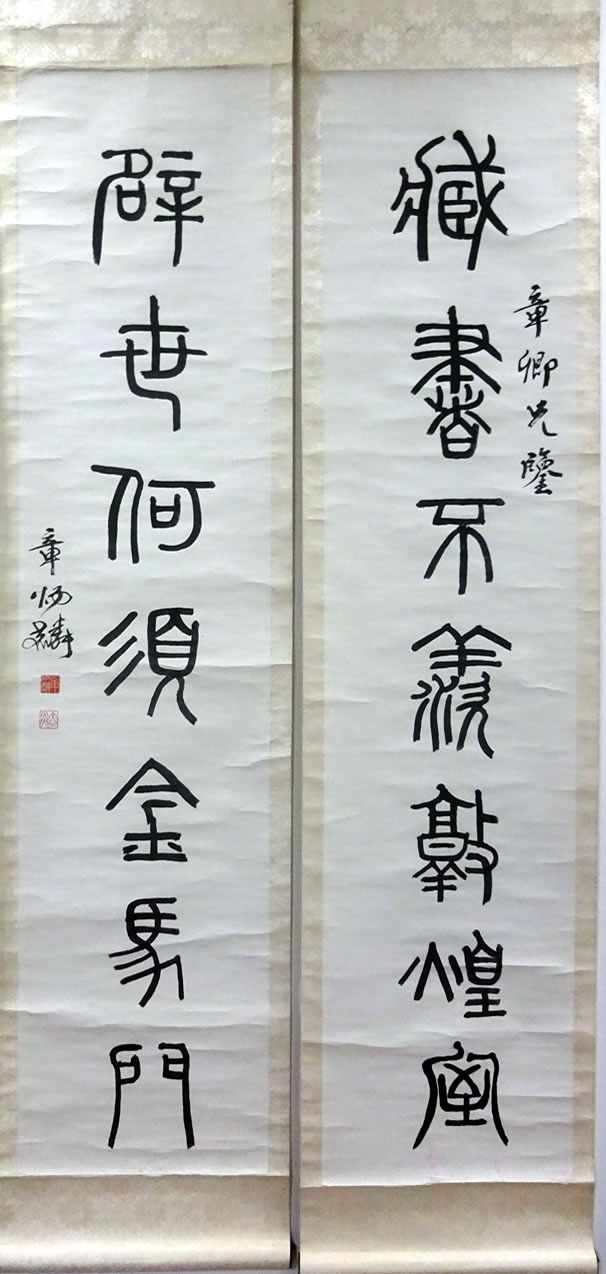 臧書不羨敦煌室
章卿先鑒
辟世何須金馬門
章炳麟